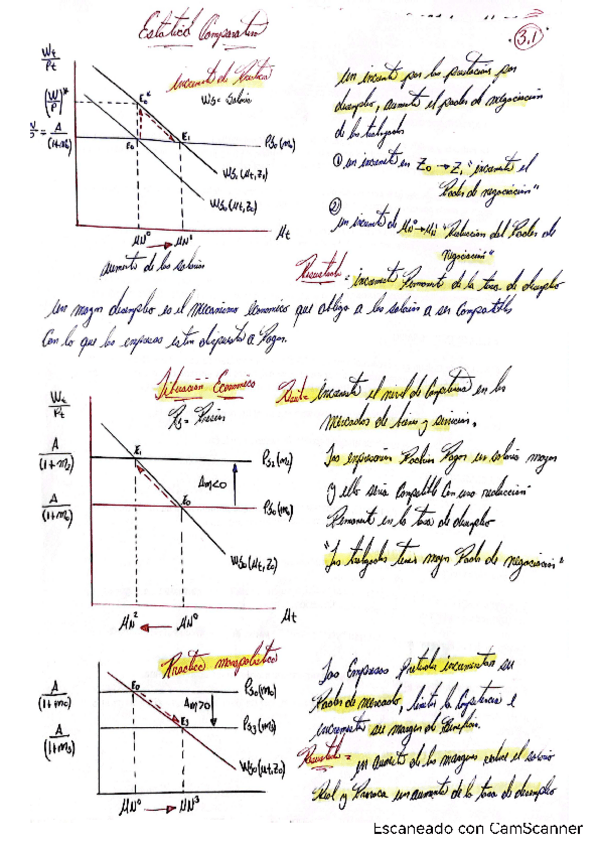 Estatica Comparativa
3.1
Wt
Pt
(W/P)*
A
(1+m0)
WS = Salario
E0*
E0
E1
PS0(m0)
WS1(Mt,Z1)
WS0(Mt,Z0)
Mt
MN⁰ → MN¹
aumento de los salarios
un incremento por las prestacion por
desempleo, aumenta el poder de negociación
de los trabajadores
① un incremento en Z0 → Z1 "incrementa el
Poder de negociación"
②
un incremento de MN⁰ → MN "Reduccion del Poder de
negociación"
Resultado = incremento Permanente de la tasa de desempleo
un mayor desempleo es el mecanismo economico que obliga a los salarios a ser compatibles
Con lo que las empresas estan dispuesta a Pagar.
Situación Economico
Wt
Pt
A
(1+m2)
A
(1+m0)
E1
E0
PS2(m2)
Δm<0
PS0(m0)
WS0(Mt,Z0)
MN² ← MN⁰
Mt
incremente el nivel de Competencia en los
mercados de bienes y servicios.
Las empresarios Podrian Pagar un salario mayor
y ello seria Compatible Con una reducción
Permanente en la tasa de desempleo
"Los trabajadores tienen mayor Poder de negociacion"
Practica monopolistica
A
(1+m0)
A
(1+m3)
E0
E3
PS0(m0)
Δm>0
PS3(m3)
WS0(Mt,Z0)
MN⁰ → MN³
Las Empresas Pretende incrementar su
Poder de mercado, limitar la Competencia e
incrementar su margen de Beneficio.
Resultado =
un aumento de los margenes reduce el salario
Real y Provoca un aumento de la tasa de desempleo
Escaneado con CamScanner